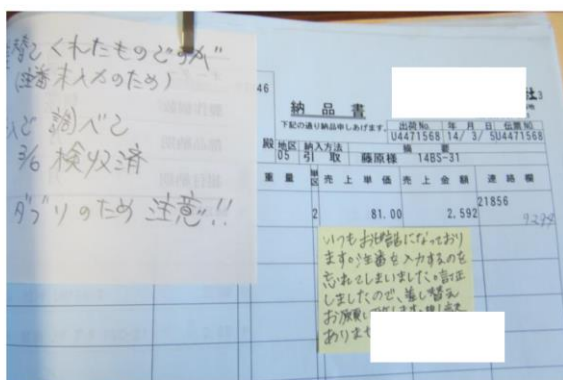 替えてくれたものですが
(注番未入力のため)
調べて
3/6 検収済
ダブリのため 注意!!
46
納品書
下記の通り納品申しあげます。
社
3
出荷No. 年 月 日 伝票No.
U4471568 14/ 3/ 5 U4471568
殿 地区 納入方法 摘要
05 引取 藤原様 14BS-31
重量 単区 売上単価 売上金額 連絡欄
21856
2 81.00 2.592
いつもお世話になっており
ます。注番を入力するのを
忘れてしまいました。訂正
しましたので、差し替え
お願い
ありませ